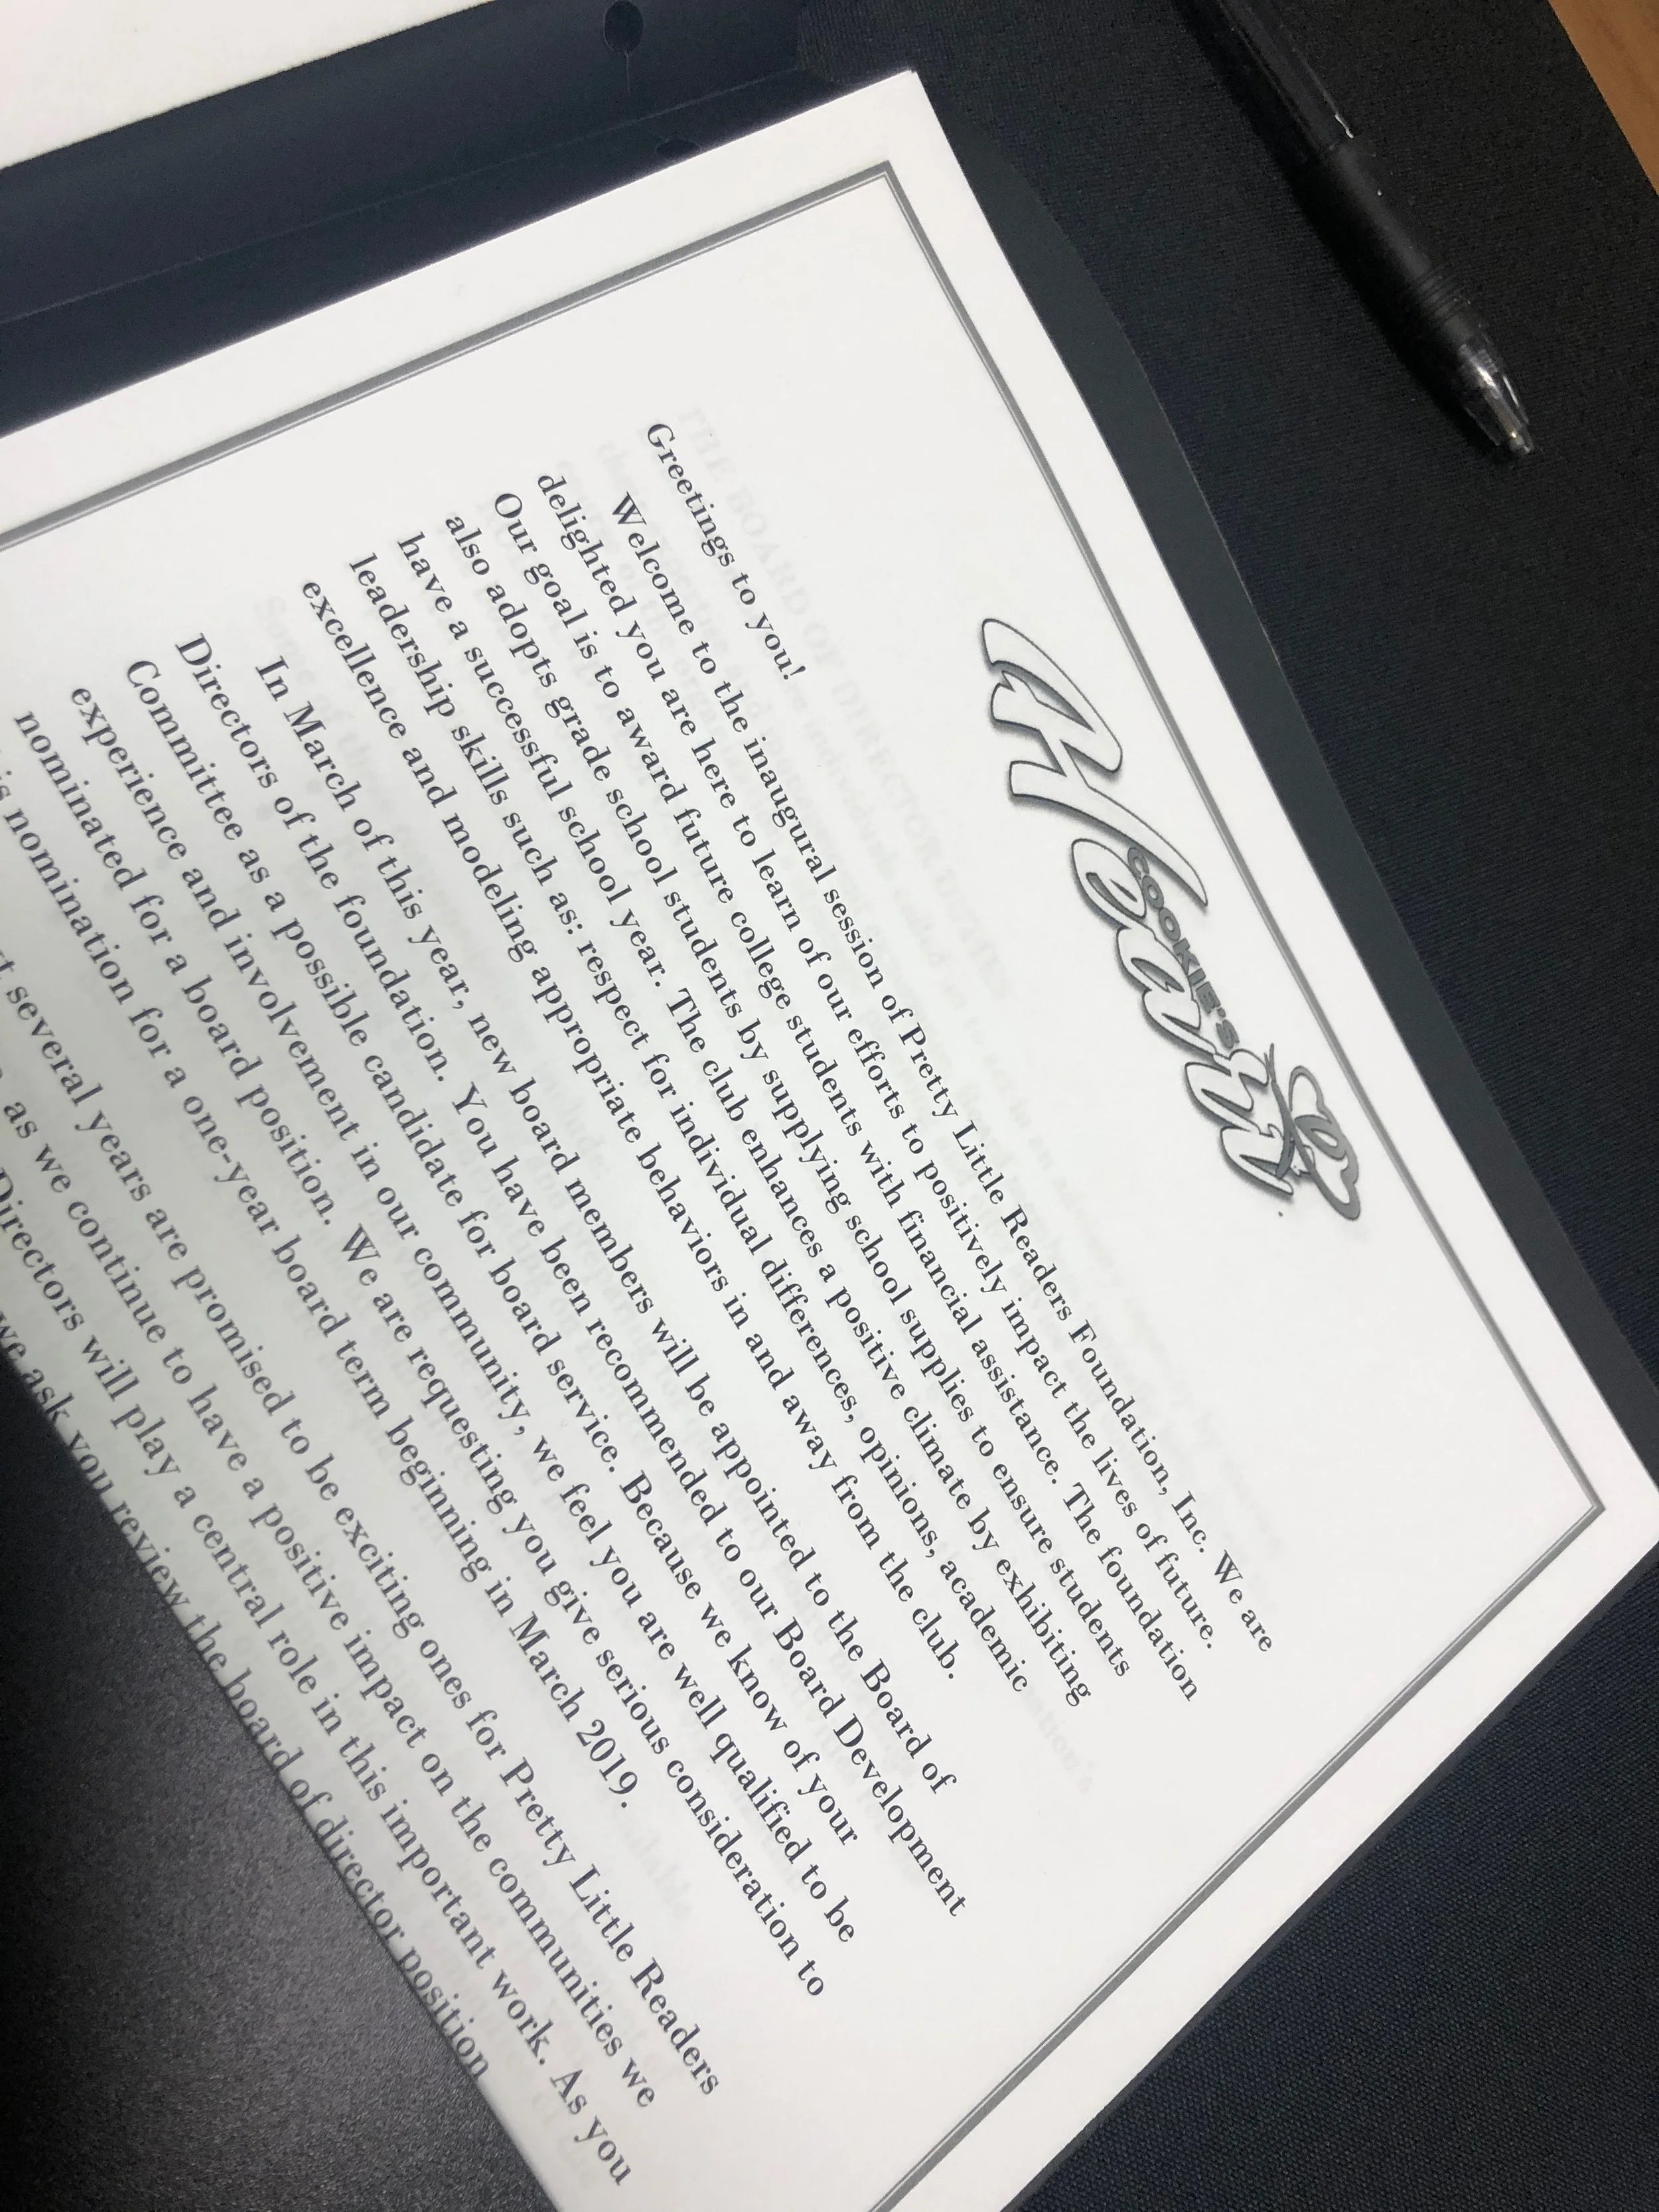 COOKIE'S
Heart
Greetings to you!
Welcome to the inaugural session of Pretty Little Readers Foundation, Inc. We are
delighted you are here to learn of our efforts to positively impact the lives of future.
Our goal is to award future college students with financial assistance. The foundation
also adopts grade school students by supplying school supplies to ensure students
have a successful school year. The club enhances a positive climate by exhibiting
leadership skills such as: respect for individual differences, opinions, academic
excellence and modeling appropriate behaviors in and away from the club.
In March of this year, new board members will be appointed to the Board of
Directors of the foundation. You have been recommended to our Board Development
Committee as a possible candidate for board service. Because we know of your
experience and involvement in our community, we feel you are well qualified to be
nominated for a board position. We are requesting you give serious consideration to
nomination for a one-year board term beginning in March 2019.
several years are promised to be exciting ones for Pretty Little Readers
as we continue to have a positive impact on the communities we
Directors will play a central role in this important work. As you
we ask you review the board of director position